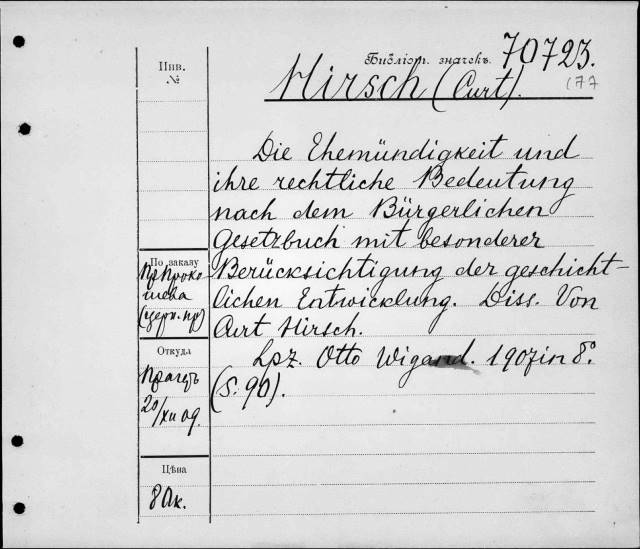 Инв.
№
Библіот. значекъ 70723.
Hirsch (Curt).
177
Die Ehemündigkeit und
ihre rechtliche Bedeutung
nach dem Bürgerlichen
Gesetzbuch mit besonderer
Berücksichtigung der geschicht-
lichen Entwicklung. Diss. Von
Curt Hirsch.
Lpz. Otto Wigand. 1907 in 8°
(S. 90).
По заказу
Пр. Проко
шева
(церк. пр)
Откуда
20/XII 09.
Цѣна